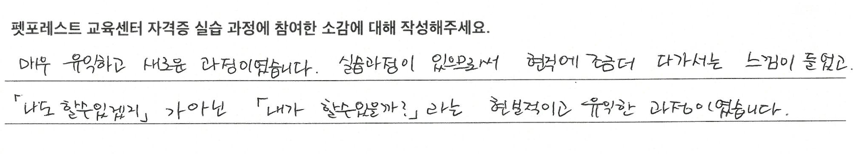 펫포레스트 교육센터 자격증 실습 과정에 참여한 소감에 대해 작성해주세요.
매우 유익하고 새로운 과정이였습니다. 실습과정이 있으므로써 현직에 조금더 다가서는 느낌이 들었고.
「나도 할수있겠지」 가아닌 「내가 할수있을까?」라는 현실적이고 유익한 과정이였습니다.